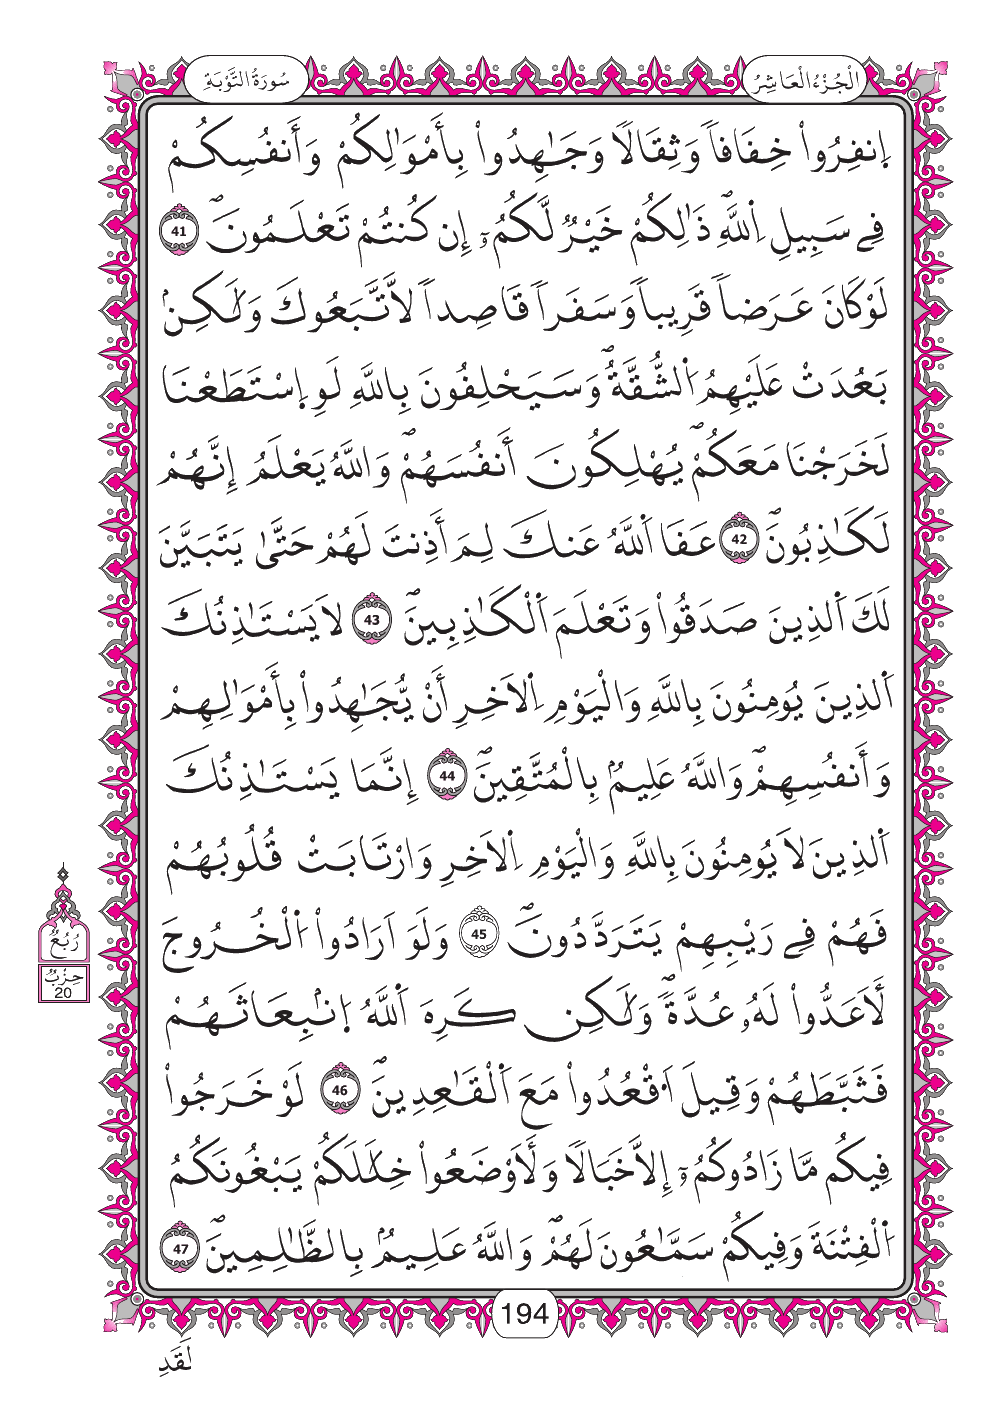 الْجُزْءُ الْعَاشِرُ
سُورَةُ التَّوْبَةِ
اِ۪نفِرُواْ خِفَافاٗ وَثِقَالاٗ وَجَٰهِدُواْ بِأَمْوَٰلِكُمْ وَأَنفُسِكُمْ
فِے سَبِيلِ اِ۬للَّهِۖ ذَٰلِكُمْ خَيْرٞ لَّكُمُۥٓ إِن كُنتُمْ تَعْلَمُونَۖ 41
لَوْ كَانَ عَرَضاٗ قَرِيباٗ وَسَفَراٗ قَاصِداٗ لَّاتَّبَعُوكَ وَلَٰكِنۢ
بَعُدَتْ عَلَيْهِمُ اُ۬لشُّقَّةُۖ وَسَيَحْلِفُونَ بِاللَّهِ لَوِ اِ۪سْتَطَعْنَا
لَخَرَجْنَا مَعَكُمْۖ يُهْلِكُونَ أَنفُسَهُمْۖ وَاللَّهُ يَعْلَمُ إِنَّهُمْ
لَكَٰذِبُونَۖ 42 عَفَا اَ۬للَّهُ عَنكَ لِمَ أَذِنتَ لَهُمْ حَتَّىٰ يَتَبَيَّنَ
لَكَ اَ۬لذِينَ صَدَقُواْ وَتَعْلَمَ اَ۬لْكَٰذِبِينَۖ 43 لَا يَسْتَٰذِنُكَ
اَ۬لذِينَ يُومِنُونَ بِاللَّهِ وَالْيَوْمِ اِ۬لَاخِرِ أَنْ يُّجَٰهِدُواْ بِأَمْوَٰلِهِمْ
وَأَنفُسِهِمْۖ وَاللَّهُ عَلِيمُۢ بِالْمُتَّقِينَۖ 44 إِنَّمَا يَسْتَٰذِنُكَ
اَ۬لذِينَ لَا يُومِنُونَ بِاللَّهِ وَالْيَوْمِ اِ۬لَاخِرِ وَارْتَابَتْ قُلُوبُهُمْ
فَهُمْ فِے رَيْبِهِمْ يَتَرَدَّدُونَۖ 45 وَلَوَ اَرَادُواْ اُ۬لْخُرُوجَ
لَأَعَدُّواْ لَهُۥ عُدَّةٗۖ وَلَٰكِن كَرِهَ اَ۬للَّهُ اُ۪نۢبِعَاثَهُمْ
فَثَبَّطَهُمْ وَقِيلَ اَ۟قْعُدُواْ مَعَ اَ۬لْقَٰعِدِينَۖ 46 لَوْ خَرَجُواْ
فِيكُم مَّا زَادُوكُمُۥٓ إِلَّا خَبَالاٗ وَلَأَوْضَعُواْ خِلَٰلَكُمْ يَبْغُونَكُمُ
اُ۬لْفِتْنَةَ وَفِيكُمْ سَمَّٰعُونَ لَهُمْۖ وَاللَّهُ عَلِيمُۢ بِالظَّٰلِمِينَۖ 47
رُبُعُ
حِزْبُ
20
194
لَقَدِ